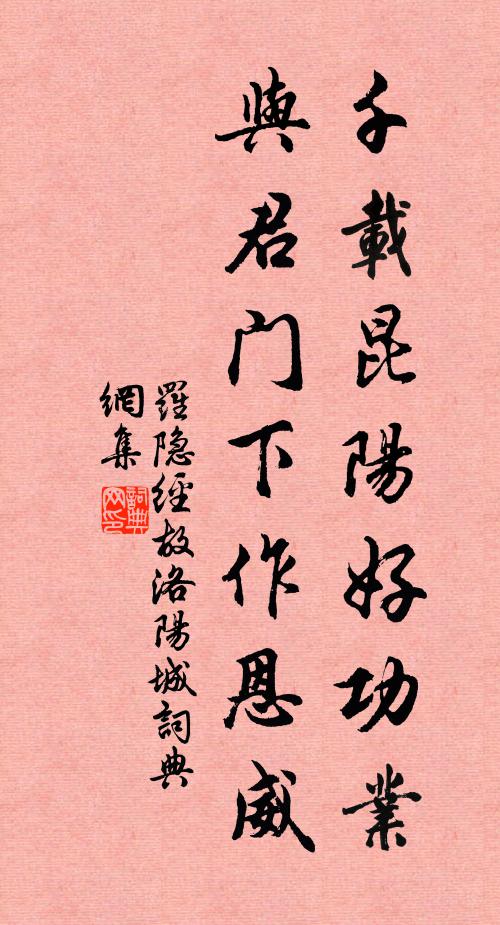 千載昆陽好功業
與君门下作恩威
羅隐經故洛陽城詞典
網集
詞典
网印